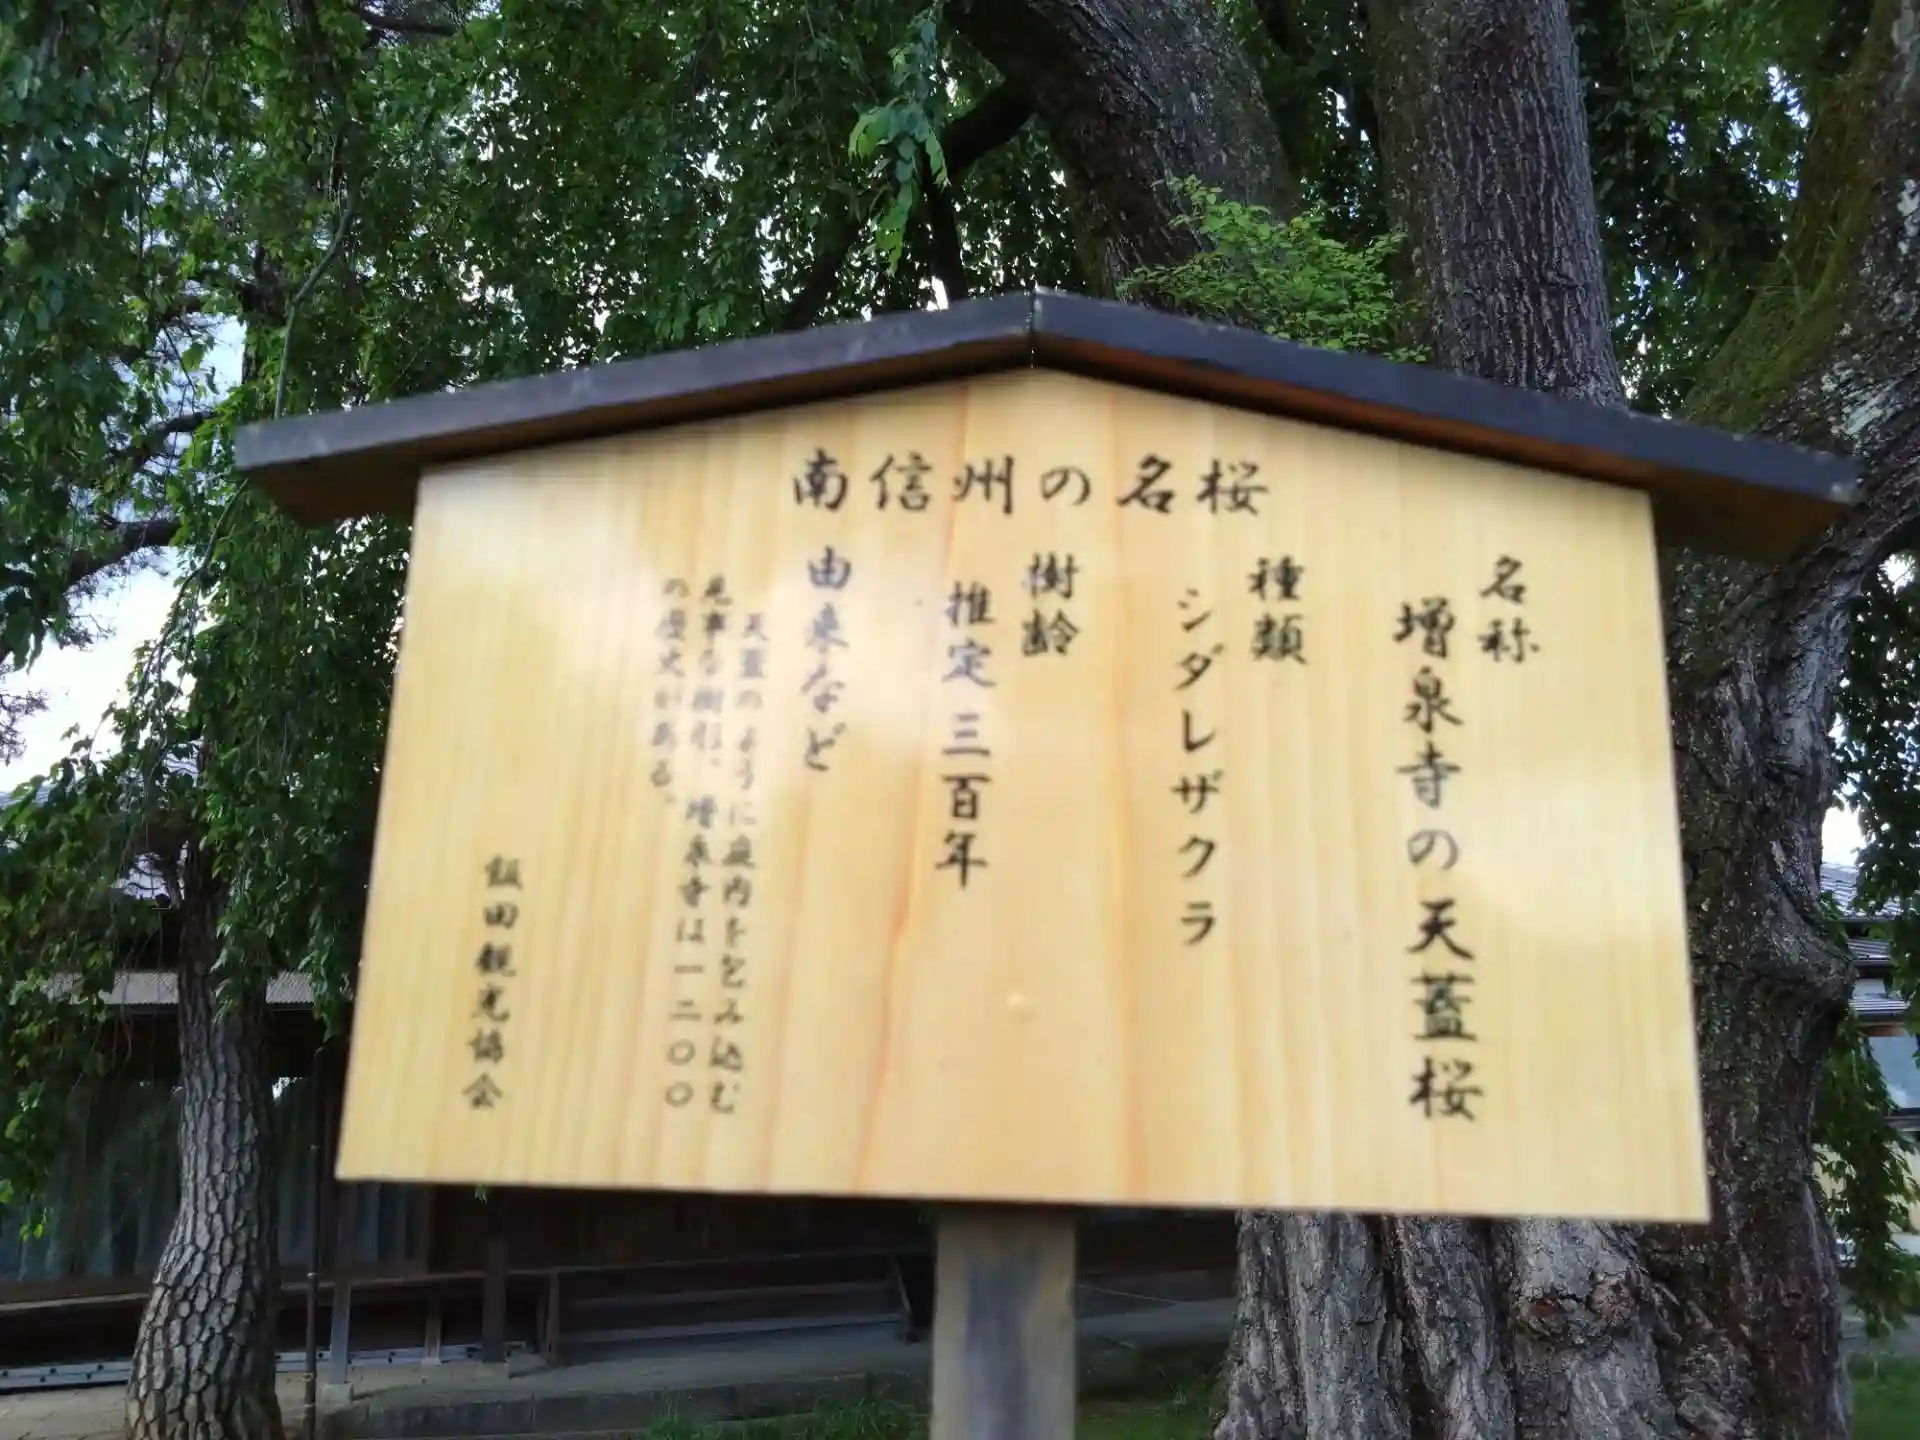 南信州の名桜
名称
増泉寺の天蓋桜
種類
シダレザクラ
樹齢
推定 三百年
由来など
天蓋のように庭内をつつみ込む
見事な樹形、増泉寺は一二〇〇
の歴史がある。
飯田観光協会